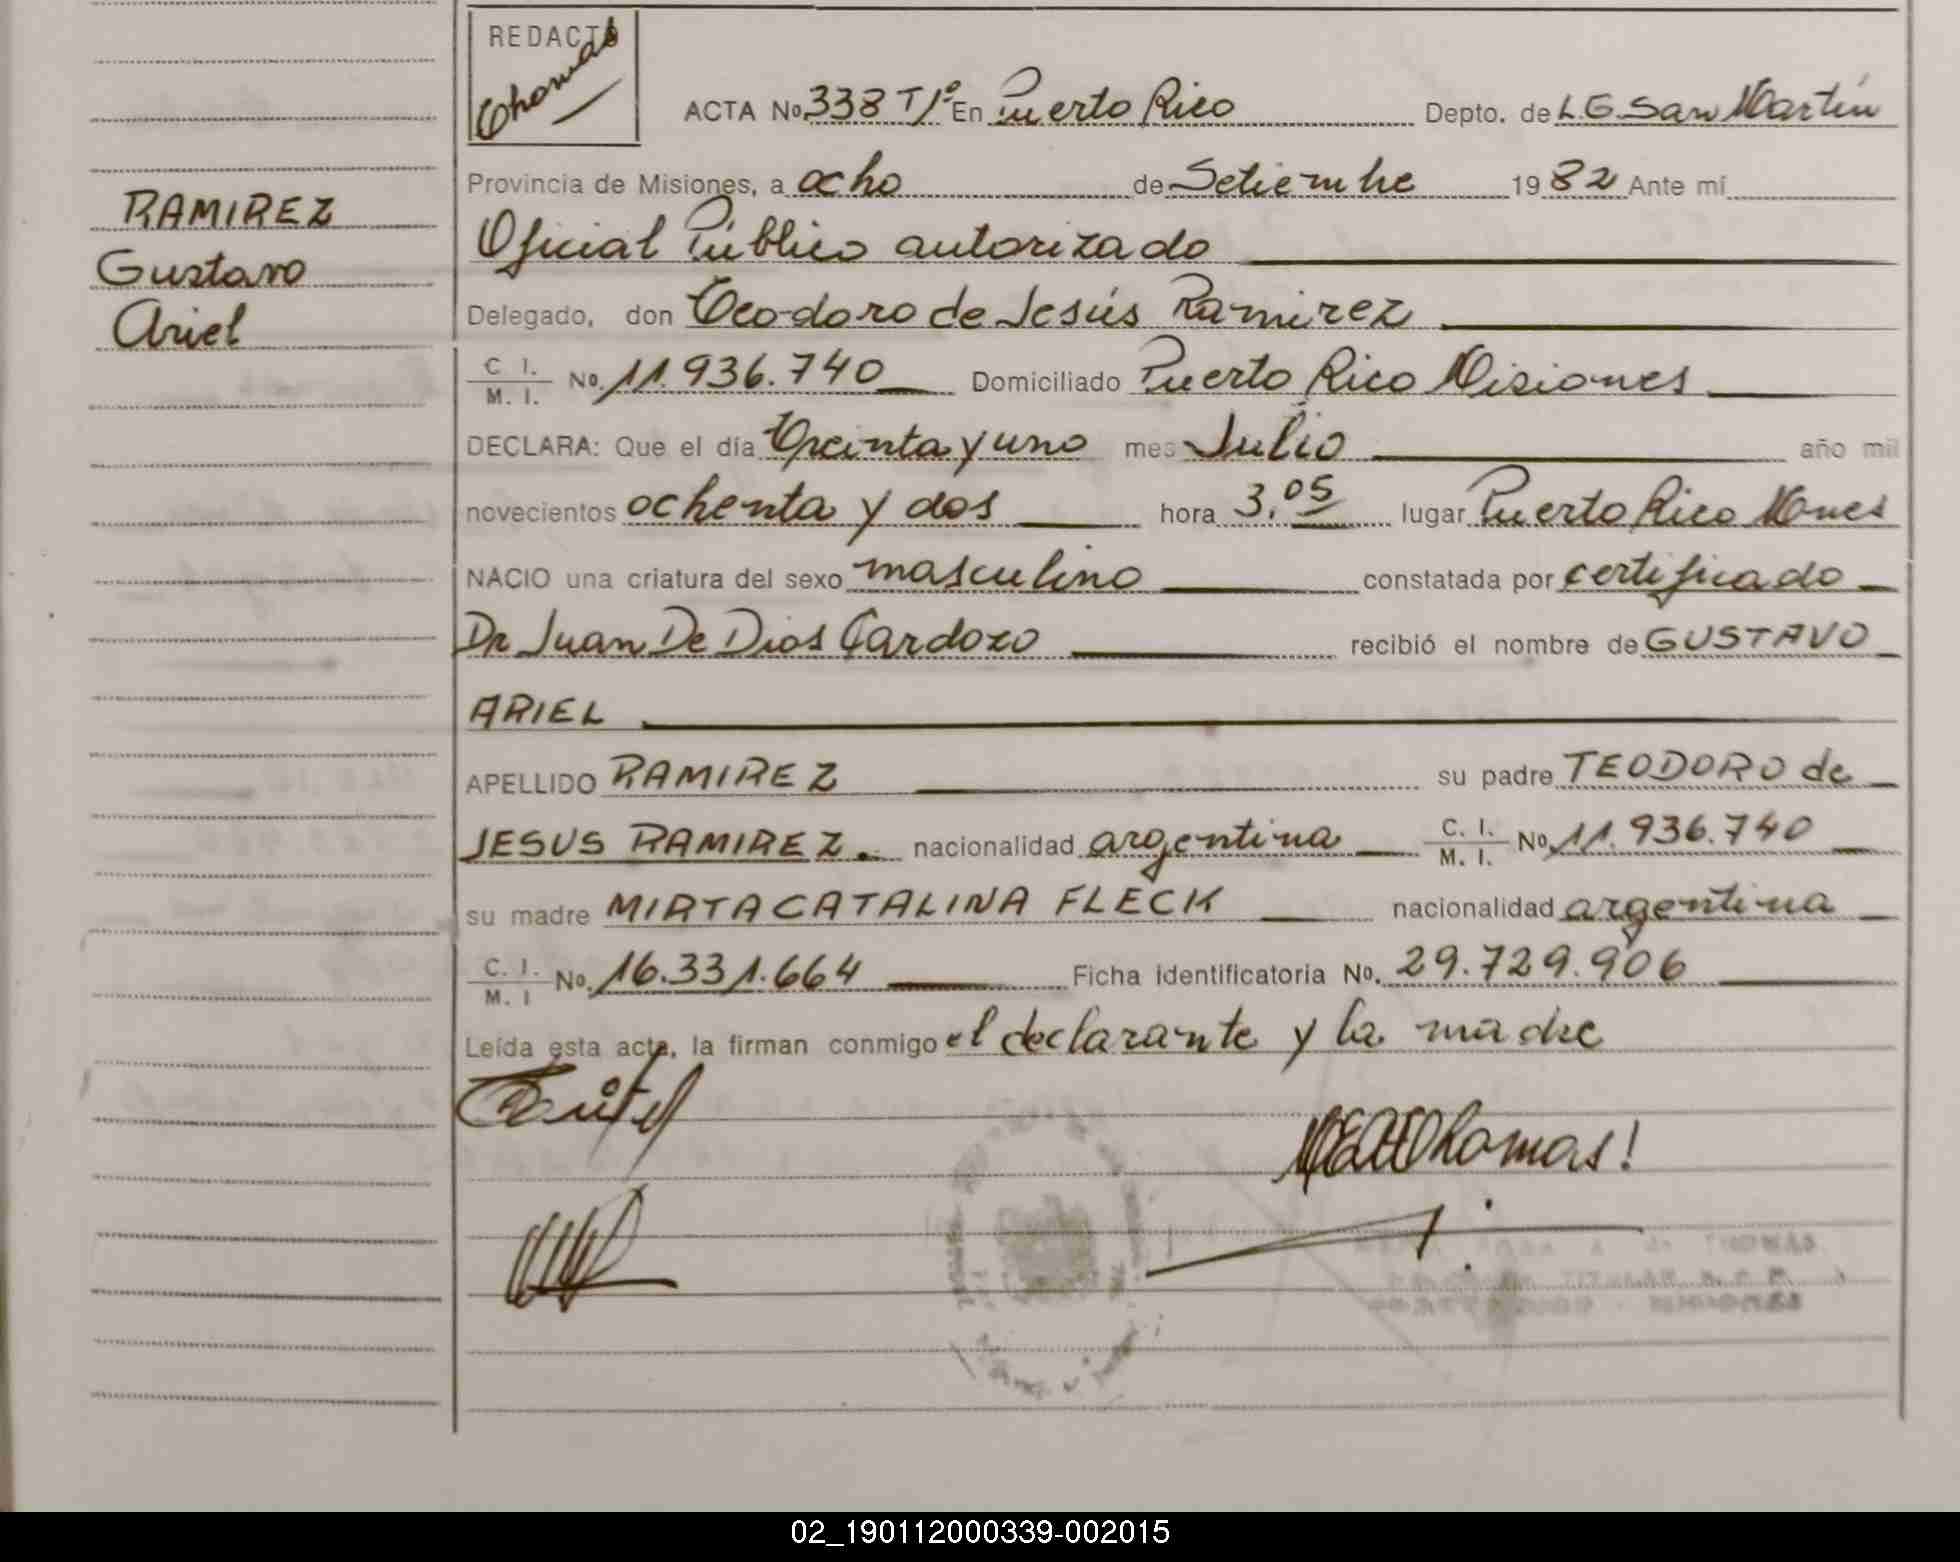 REDACTO
Chomas
ACTA No 338 Tº1º En Puerto Rico Depto. de L.G. San Martín
RAMIREZ
Gustavo
Ariel
Provincia de Misiones, a ocho de Setiembre 1982 Ante mí
Oficial Público autorizado
Delegado, don Teodoro de Jesús Ramirez
C. I. / M. I. No. 11.936.740 Domiciliado Puerto Rico Misiones
DECLARA: Que el día Treinta y uno mes Julio año mil
novecientos ochenta y dos hora 3.05 lugar Puerto Rico Mnes
NACIO una criatura del sexo masculino constatada por certificado
Dr Juan De Dios Cardozo recibió el nombre de GUSTAVO
ARIEL
APELLIDO RAMIREZ su padre TEODORO de
JESUS RAMIREZ. nacionalidad argentina C. I. / M. I. No 11.936.740
su madre MIRTA CATALINA FLECK nacionalidad argentina
C. I. / M. I No. 16.331.664 Ficha identificatoria No. 29.729.906
Leída esta acta, la firman conmigo el declarante y la madre
02_190112000339-002015